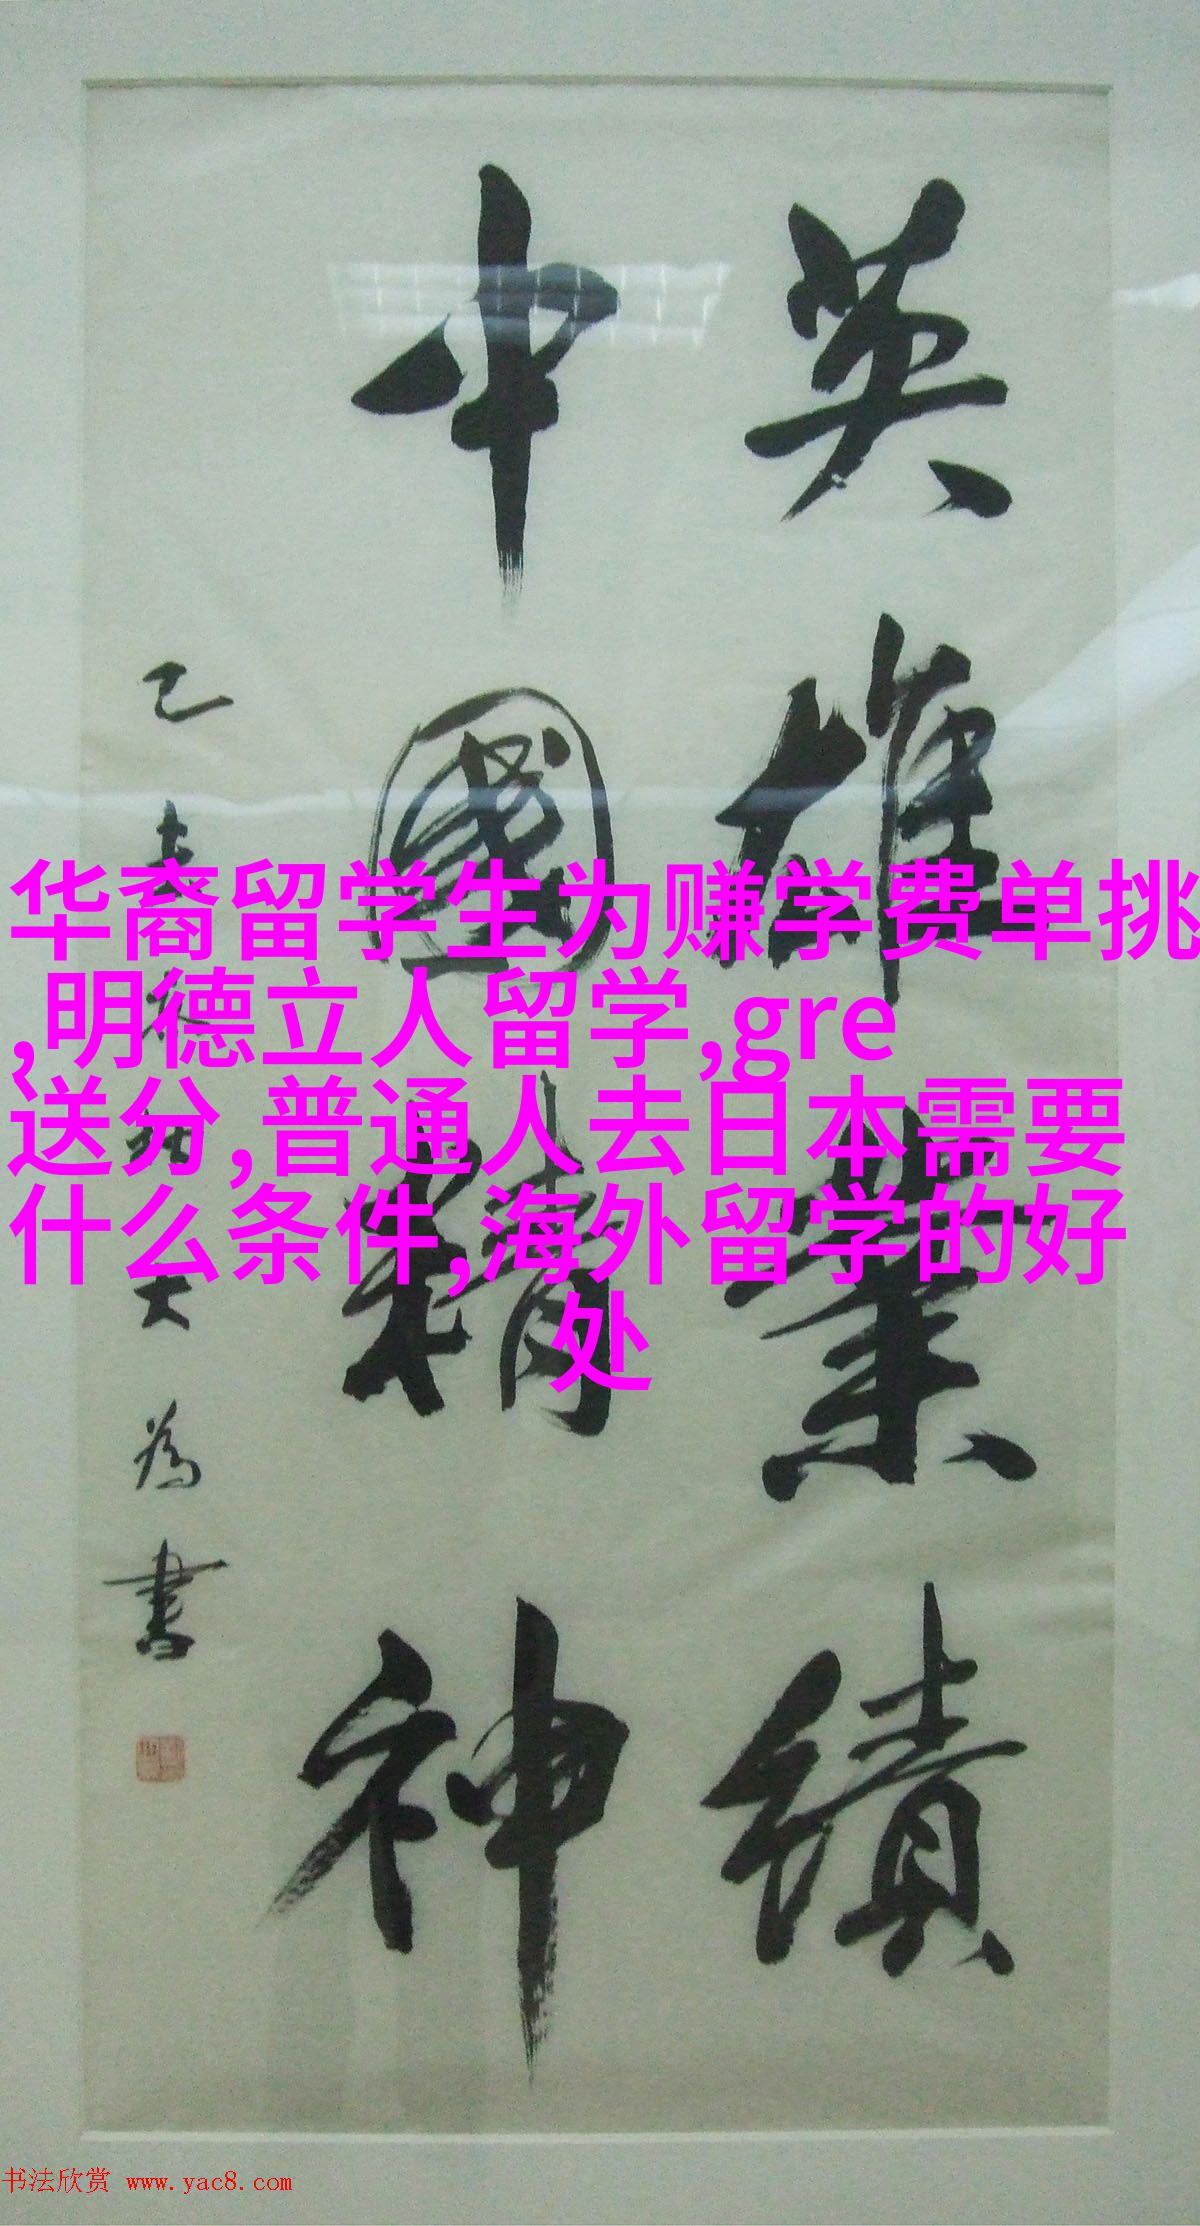 英雄業績
中國精神
為書
华裔留学生为赚学费单挑
,明德立人留学,gre
送分,普通人去日本需要
什么条件,海外留学的好
处
书法欣赏 www.yac8.com